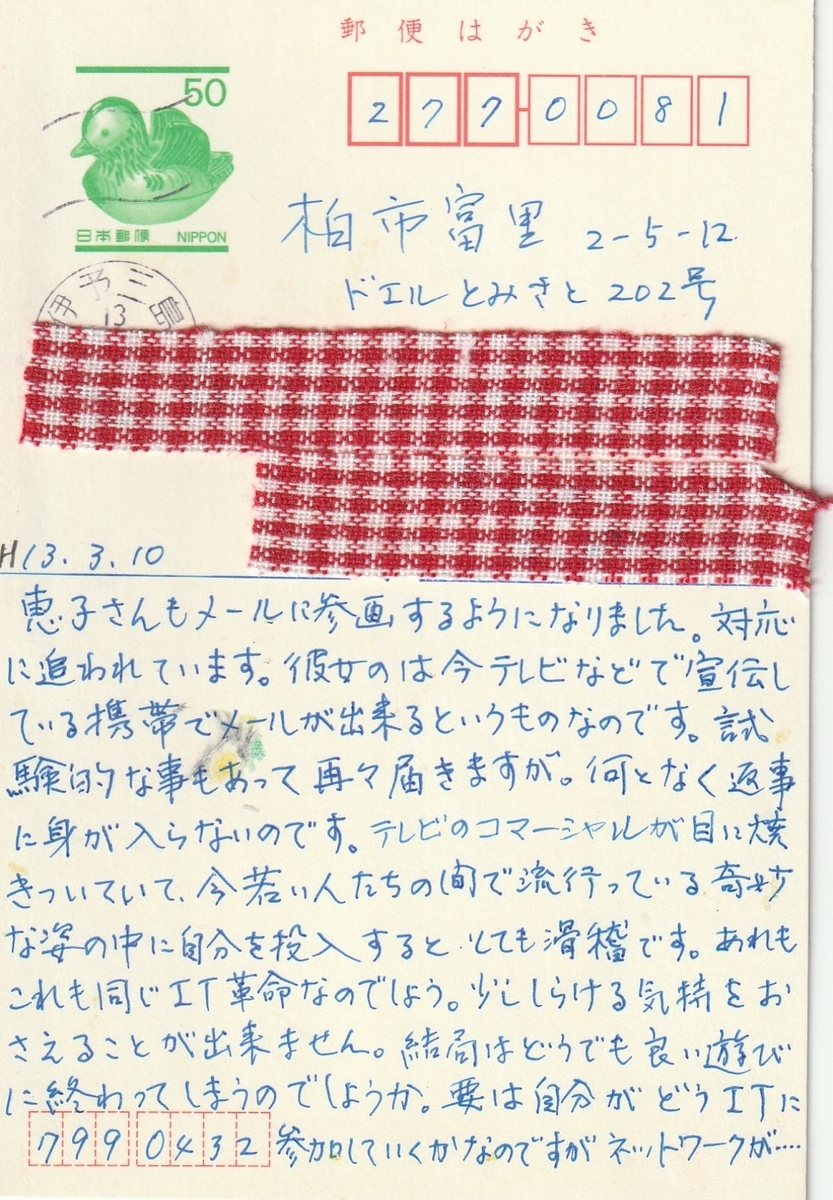 郵便はがき
50
日本郵便 NIPPON
277-0081
柏市富里 2-5-12
ドエルとみさと 202号
伊予三島
13
H13.3.10
恵子さんもメールに参画するようになりました。対応
に追われています。彼女のは今テレビなどで宣伝し
ている携帯でメールが出来るというものなのです。試
験的な事もあって再々届きますが。何となく返事
に身が入らないのです。テレビのコマーシャルが目に焼
きついていて、今若い人たちの間で流行っている奇妙
な姿の中に自分を投入するととても滑稽です。あれも
これも同じIT革命なのでしょう。少ししらける気持をお
さえることが出来ません。結局はどうでも良い遊び
に終わってしまうのでしょうか。要は自分がどうITに
799 0432 参加していくかなのですがネットワークが‥‥